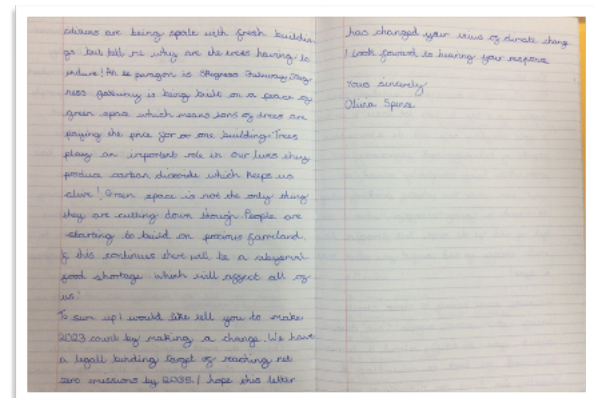 are being spoilt with fresh buildin
gs but tell me why are the trees having to
endure! An paragon is Skegness Gateway. Skeg
ness gateway is being built on a peace of
green space which means tons of trees are
paying the price for one building. Trees
play an important role in our lives they
produce carbon dioxide which keeps us
alive! Green space is not the only thing
they are cutting down though. People are
starting to build on precious farmland.
If this continues there will be a
food shortage which will affect all of
us!
To sum up I would like tell you to make
2023 count by making a change. We have
a legall binding target of reaching net
zero emissions by 2035. I hope this letter
has changed your views of climate change
I look forward to hearing your response
Yours sincerely